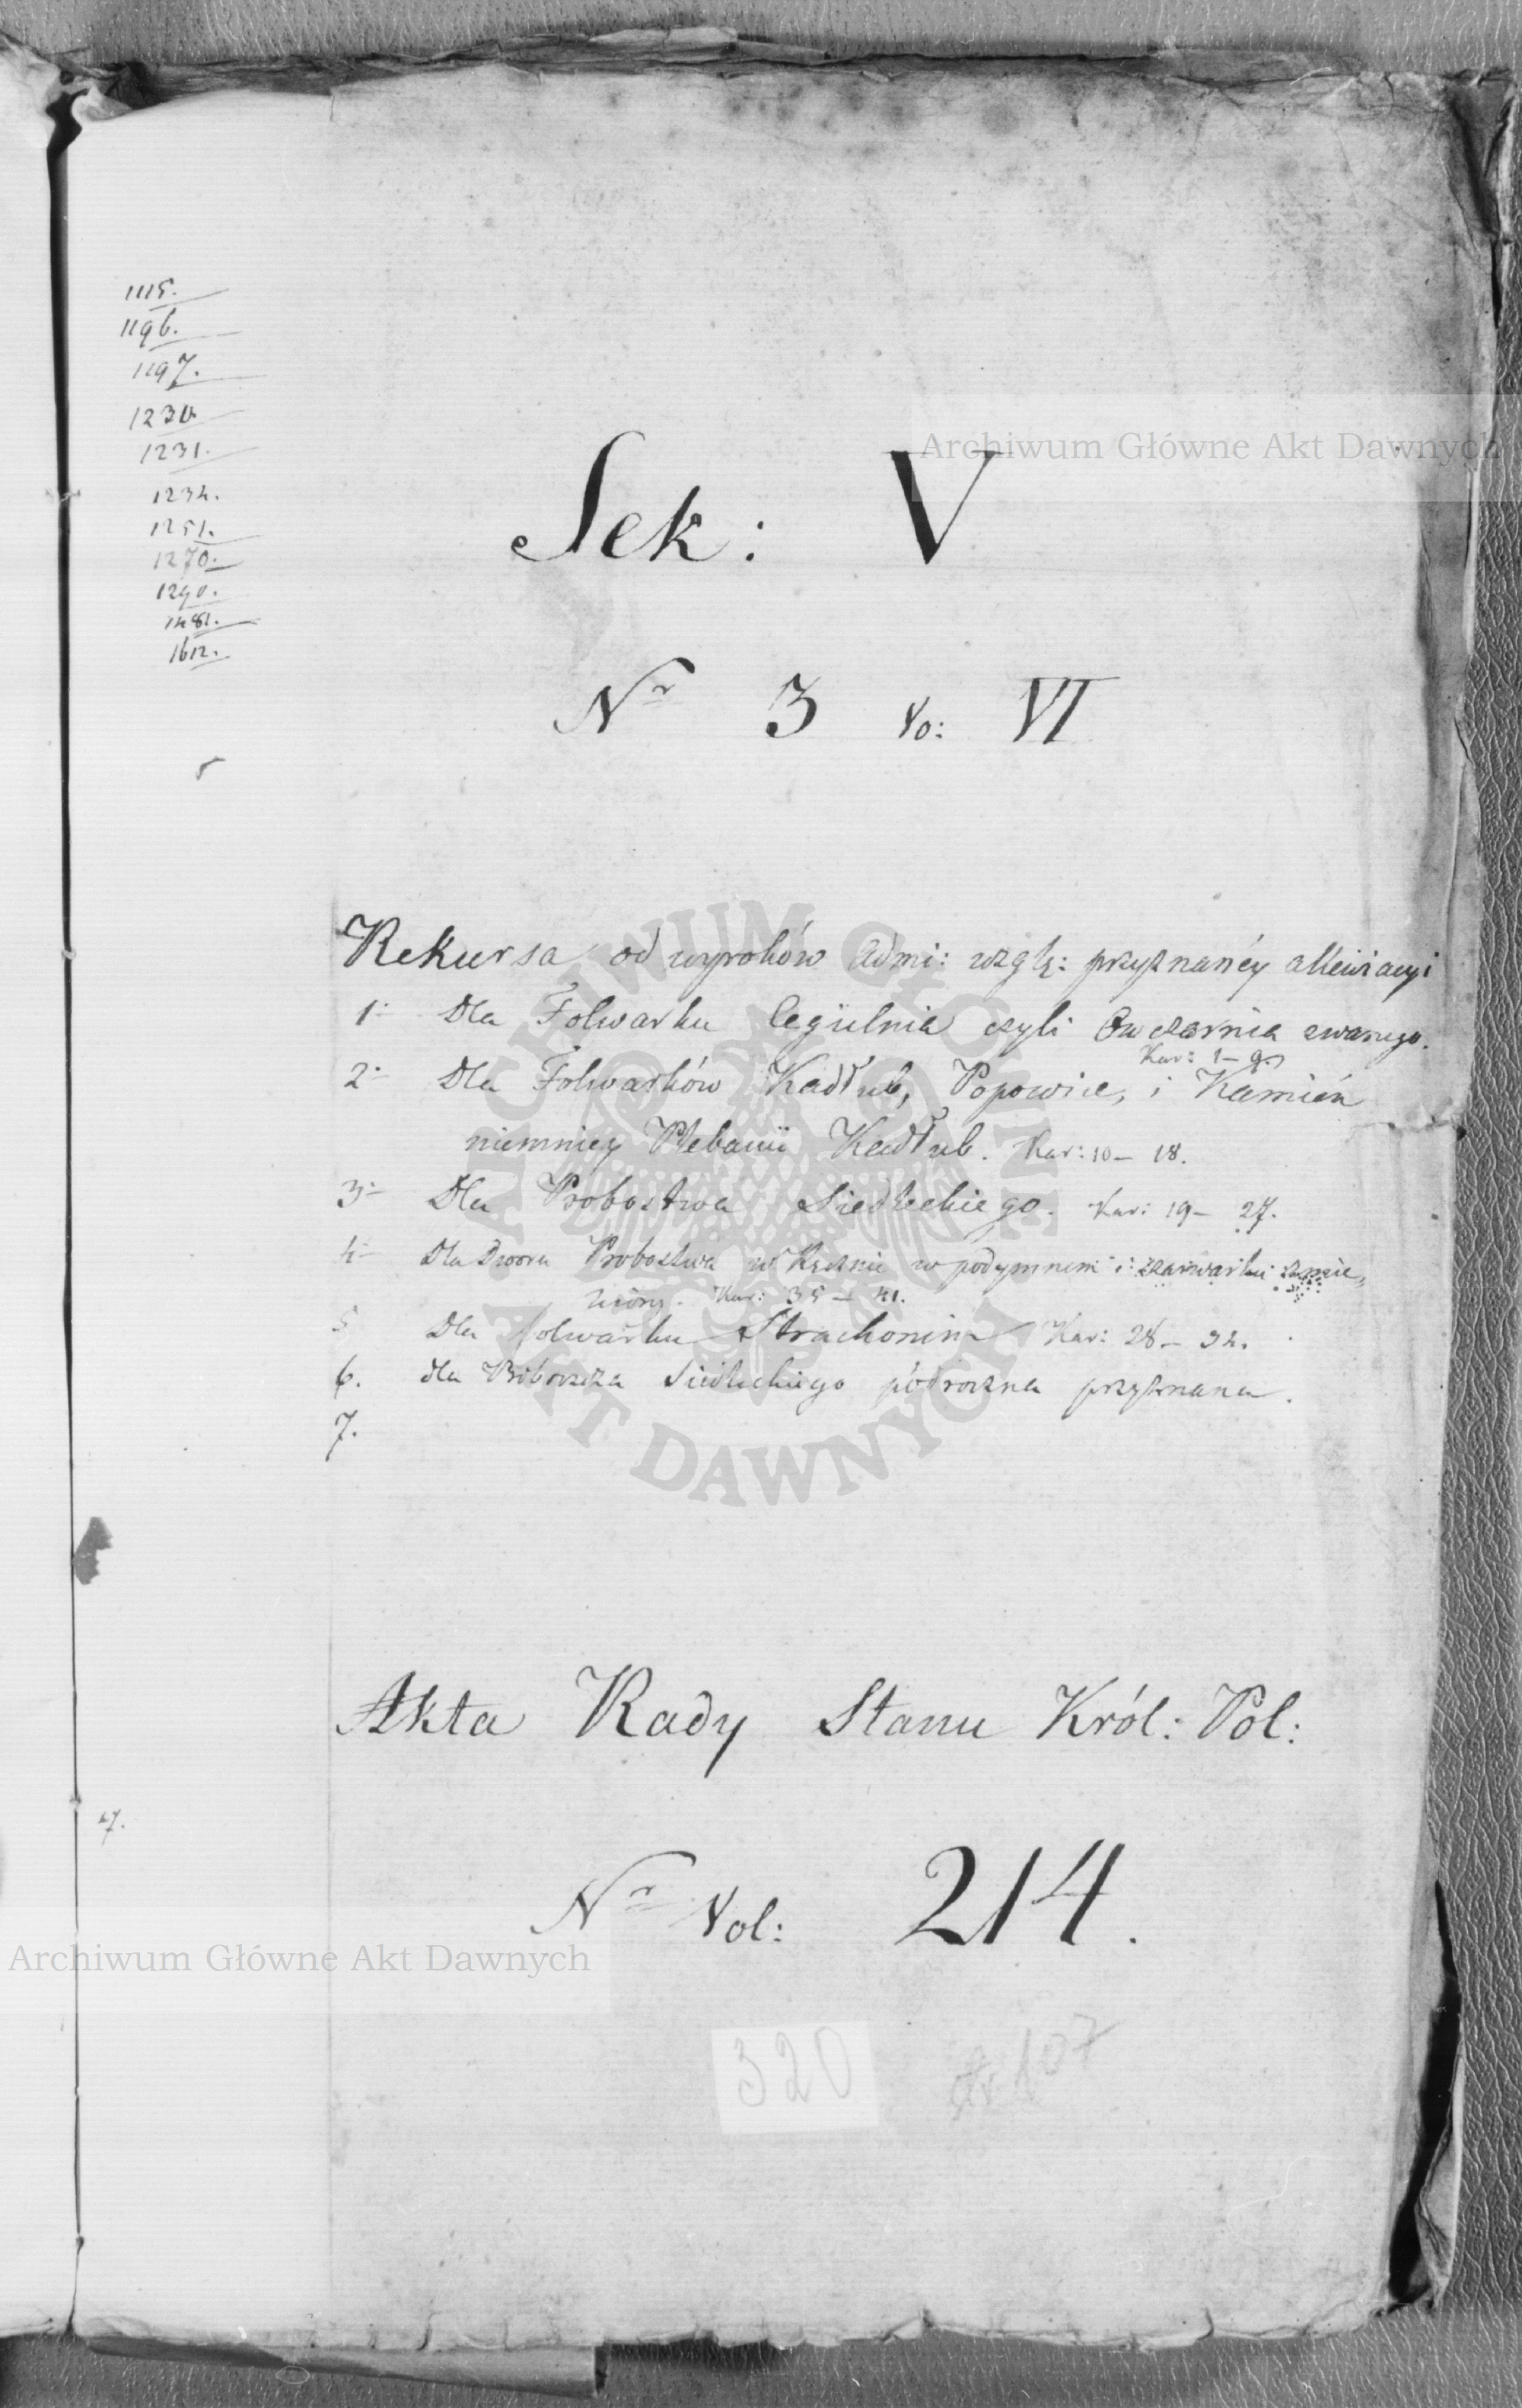 1115.
1196.
1197.
1230
1231.
1234.
1251.
1270.
1290.
1481.
1612.
Archiwum Główne Akt Dawnych
Sek: V
Nr 3 Vo: VI
Rekursa od wyroków Admi: wzglę: przyznanéy allewiacyi
1. Dla Folwarku Cegielnia czyli Owczarnia zwanego.
Kar: 1–9
2. Dla Folwarków Kadłub, Popowice, i Kamień
niemniey Plebanii Kadłub. Kar: 10 – 18.
3. Dla Probostwa Siedleckiego. Kar: 19 – 27.
4. Dla Dworu Probostwa w w podymnem i szarwarku
Kar: 35 – 41.
5 Dla folwarku Strachonin Kar: 28 – 34.
6. dla Siedleckiego półroczna przyznana.
7.
ARCHIWUM GŁÓWNE AKT DAWNYCH
Akta Rady Stanu Król: Pol:
47.
Nr Vol: 214.
Archiwum Główne Akt Dawnych
320
107